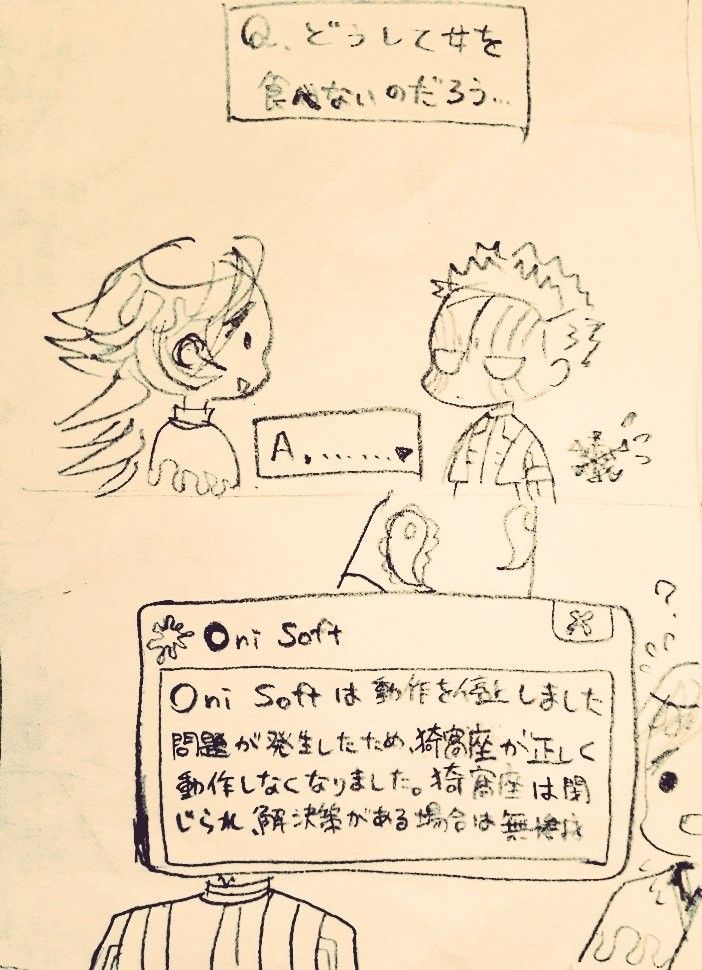 Q. どうして女を
食べないのだろう...
A. .......♥
Oni Soft
Oni Soft は 動作を停止しました
問題が発生したため、猗窩座が正しく
動作しなくなりました。猗窩座は閉
じられ、解決策がある場合は無惨
?